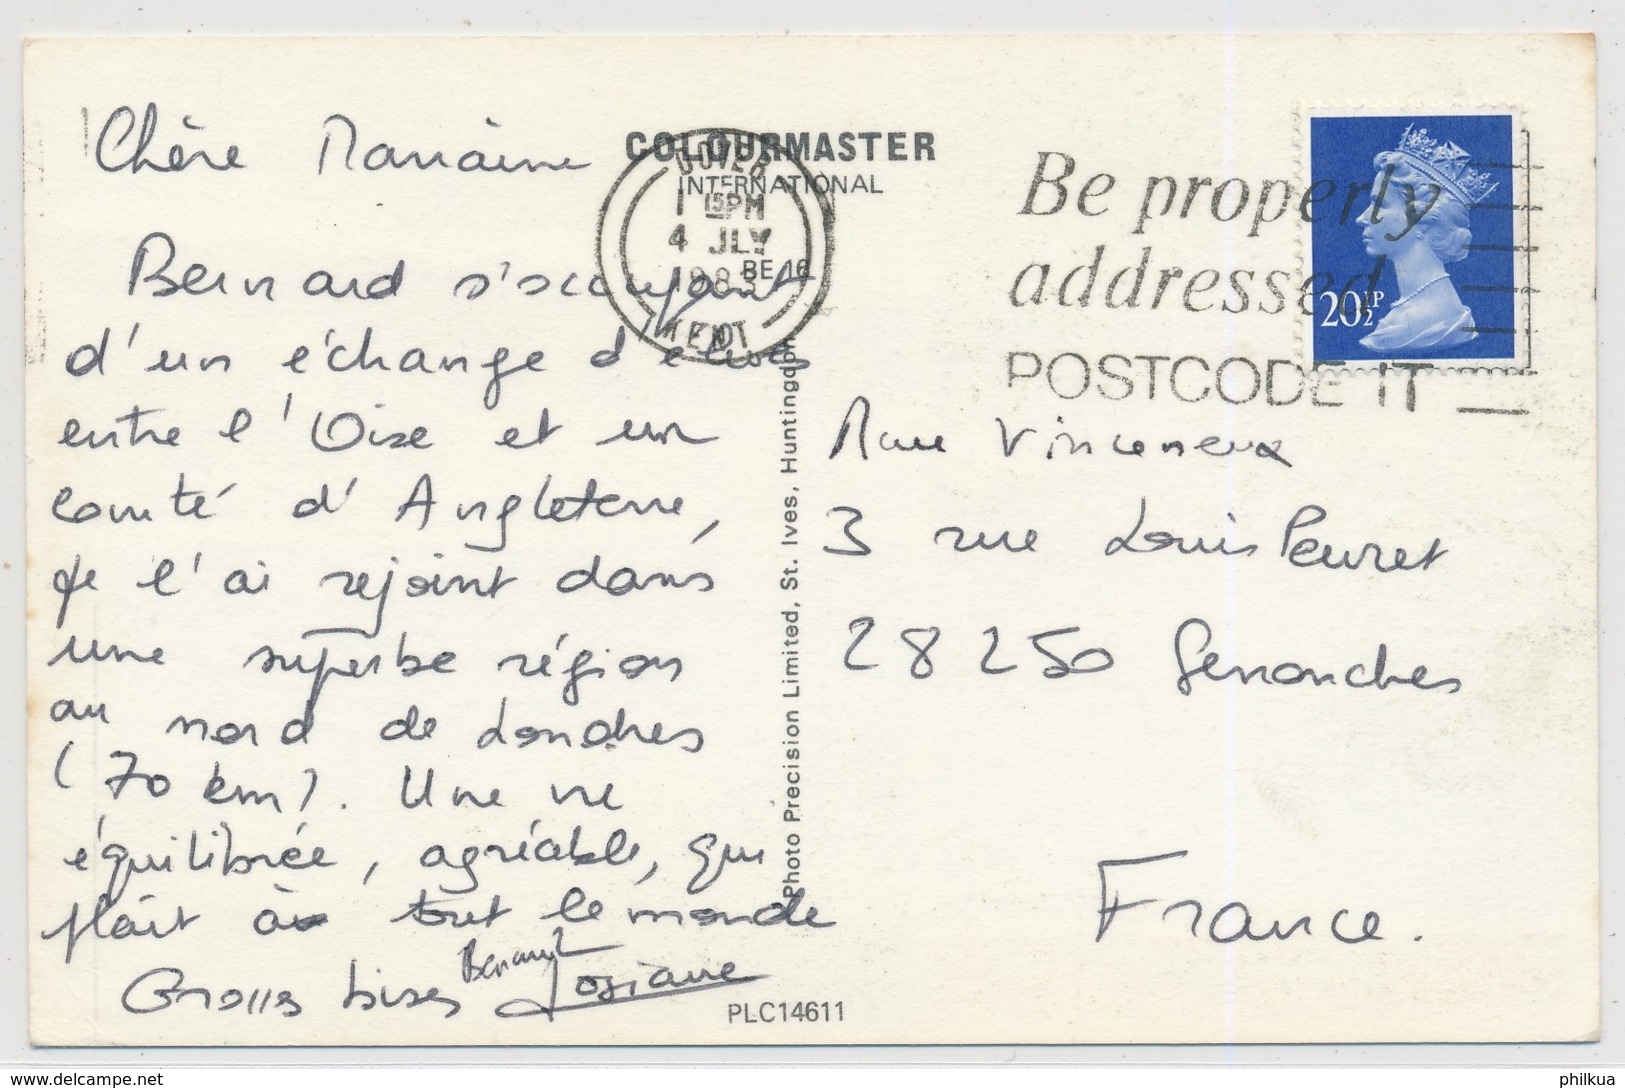 Chère Marraine
Bernard s'occupant
d'un échange d'élèves
entre l'Oise et un
comté d'Angleterre,
je l'ai rejoint dans
une superbe région
au nord de Londres
(70 km). Une vie
équilibrée, agréable, qui
plaît à tout le monde
Grosses bises Bernard Josiane
COLOURMASTER
INTERNATIONAL
DOVER
1 15PM
4 JLY
1983
KENT
BE 16
Be properly
addressed
POSTCODE IT
20½P
Photo Precision Limited, St. Ives, Huntingdon
3 rue Louis Peuret
28250 Senonches
France.
PLC14611
www.delcampe.net
philkua